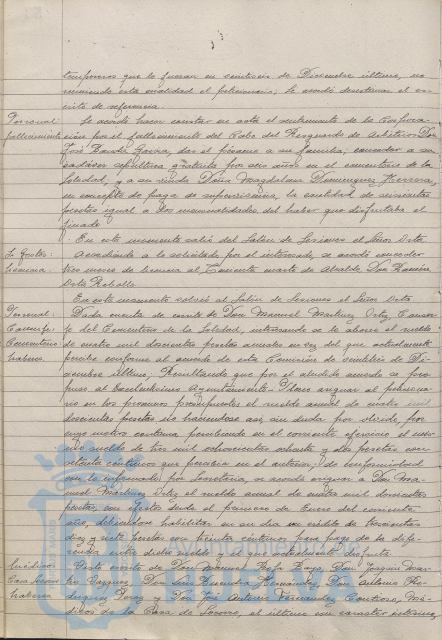 temporeros que lo fueran en veintiseis de Diciembre último, no
reuniendo esta cualidad el peticionario; se acordó desestimar el es-
crito de referencia.
Personal: fallecimiento
Se acordó hacer constar en acta el sentimiento de la Corpora-
ción por el fallecimiento del Cabo del Resguardo de Arbitrios Don
José, dar el pésame a su familia; conceder a su
cadáver sepultura gratuita por seis años en el cementerio de la
Soledad, y a su viuda Doña Magdalena Dominguez Herrera,
en concepto de paga de supervivencia, la cantidad de
pesetas igual a dos mensualidades del haber que disfrutaba el
finado.
En este momento salió del Salón de Sesiones el Señor
licencia.
Accediendo a lo solicitado por el interesado, se acordó conceder
tres meses de licencia al Teniente cuarto de Alcalde, Don Ramón
Rebollo.
En este momento volvió al Salón de Sesiones el Señor
Personal: Conserje Cementerio haberes
Dada cuenta de escrito de Don Manuel Martinez Ortiz, Conser-
je del Cementerio de la Soledad, interesando se le abone el sueldo
de cuatro mil doscientas pesetas anuales en vez del que actualmente
percibe conforme al acuerdo de esta Comisión de veintiseis de Di-
ciembre último; Resultando que por el aludido acuerdo se pro-
puso al Excelentísimo Ayuntamiento Pleno asignar al
en los presupuestos el sueldo anual de cuatro mil
doscientas pesetas no haciendose así, sin duda por olvido, por
cuyo motivo continua percibiendo en el corriente ejercicio el
sueldo de tres mil ochocientas ochenta y dos pesetas con
céntimos que percibia en el anterior; de conformidad
con lo informado por Secretaría, se acordó asignar a Don Ma-
nuel Martinez Ortiz el sueldo anual de cuatro mil doscientas
pesetas, con efectos desde el primero de Enero del corriente
año, debiendose habilitar en su dia un crédito de trescientas
diez y siete pesetas con treinta céntimos para pago de la dife-
rencia entre dicho sueldo y el que actualmente disfruta.
Médicos Casa Socorro haberes
Visto escrito de Don Manuel Rofa, Don Joaquin Mar-
Vazquez, Don Luis Buendia Hernández, Don Antonio
y Don José Antonio Fernandez, Mé-
dicos de la Casa de Socorro, el último con caracter interino,